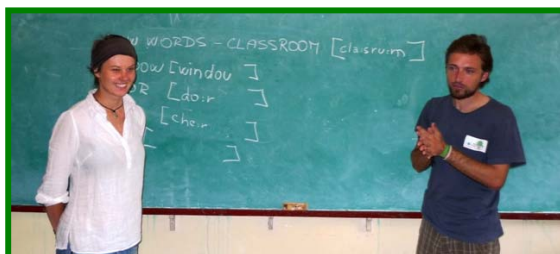 W WORDS - CLASSROOM [cla:sru:m]
OW [windou ]
R [do:r ]
[che:r ]
[ ]